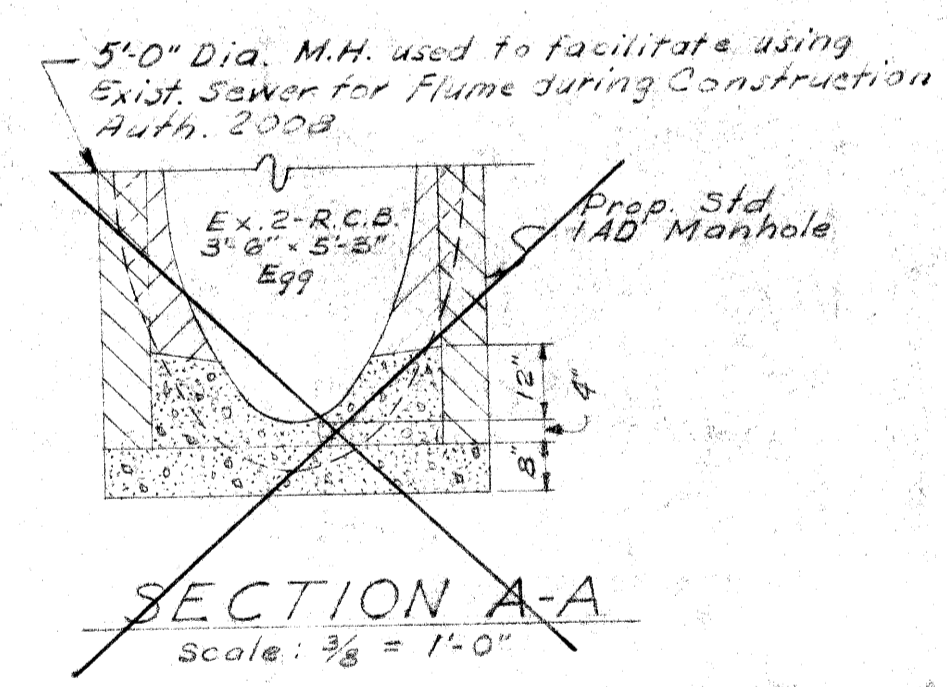 5'-0" Dia. M.H. used to facilitate using
Exist. Sewer for Flume during Construction
Auth. 2008
Ex. 2-R.C.B.
3'-6" × 5'-3"
Egg
Prop. Std
1AD Manhole
12"
4"
8"
SECTION A-A
Scale: 3/8 = 1'-0"